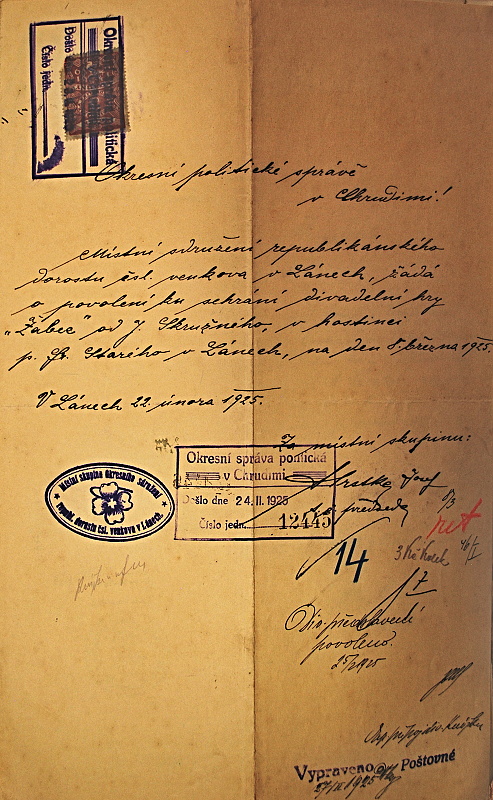 Okresní politická
Došlo
Číslo jedn.
Okresní politické správě
v Chrudimi!
Místní sdružení republikánského
dorostu čsl. venkova v Lánech, žádá
o povolení ku sehrání divadelní hry
„Žabec" od J. Skružného, v hostinci
p. Fr. Starího v Lánech, na den 8. března 1925.
V Lánech 22. února 1925.
Za místní skupinu:
Josef
předseda
Místní skupina Okresního sdružení
republ. dorostu čsl. venkova v Lánech.
Okresní správa politická
v Chrudimi
Došlo dne 24. II. 1925
Číslo jedn. 12445
14
3 Kč kolek
Div. představení
povoleno.
25/2 1925
Vypraveno Poštovné
27/II 1925